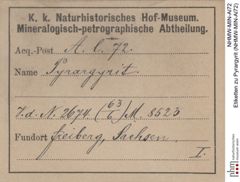 K. k. Naturhistorisches Hof-Museum.
Mineralogisch-petrographische Abtheilung.
Acq.-Post A. C. 72.
Name Pyrargyrit
V. d. N. 2674 (63/6) M. 8523
Fundort Freiberg, Sachsen
I.
NHMW-MIN-AI72
Etiketten zu Pyrargyrit (NHMW-MIN-AI72)
nhm